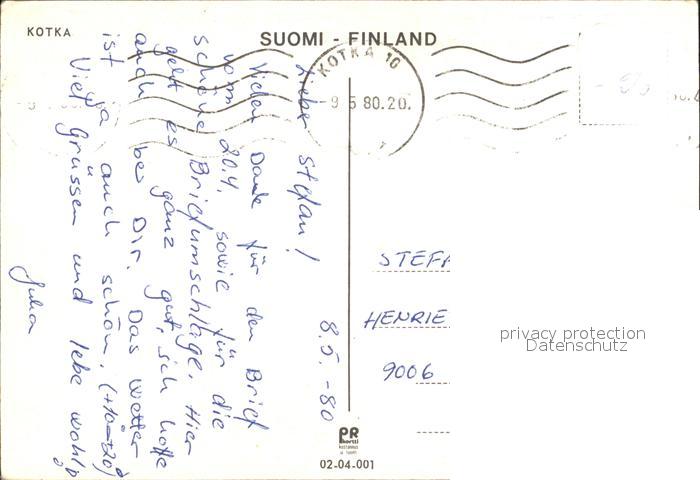 KOTKA
SUOMI - FINLAND
KOTKA 10
9 5 80.20.
8.5.-80
Lieber Stefan!
Vielen Dank für den Brief
vom 20.4. sowie für die
schöne Briefumschläge. Hier
geht es ganz gut, ich hoffe
auch bei Dir. Das Wetter
ist ja auch schön. (+10-+20)
Viel Grüssen und lebe wohl
Julia
STEFA
HENRIE
9006
privacy protection
Datenschutz
PR
kortti
02-04-001